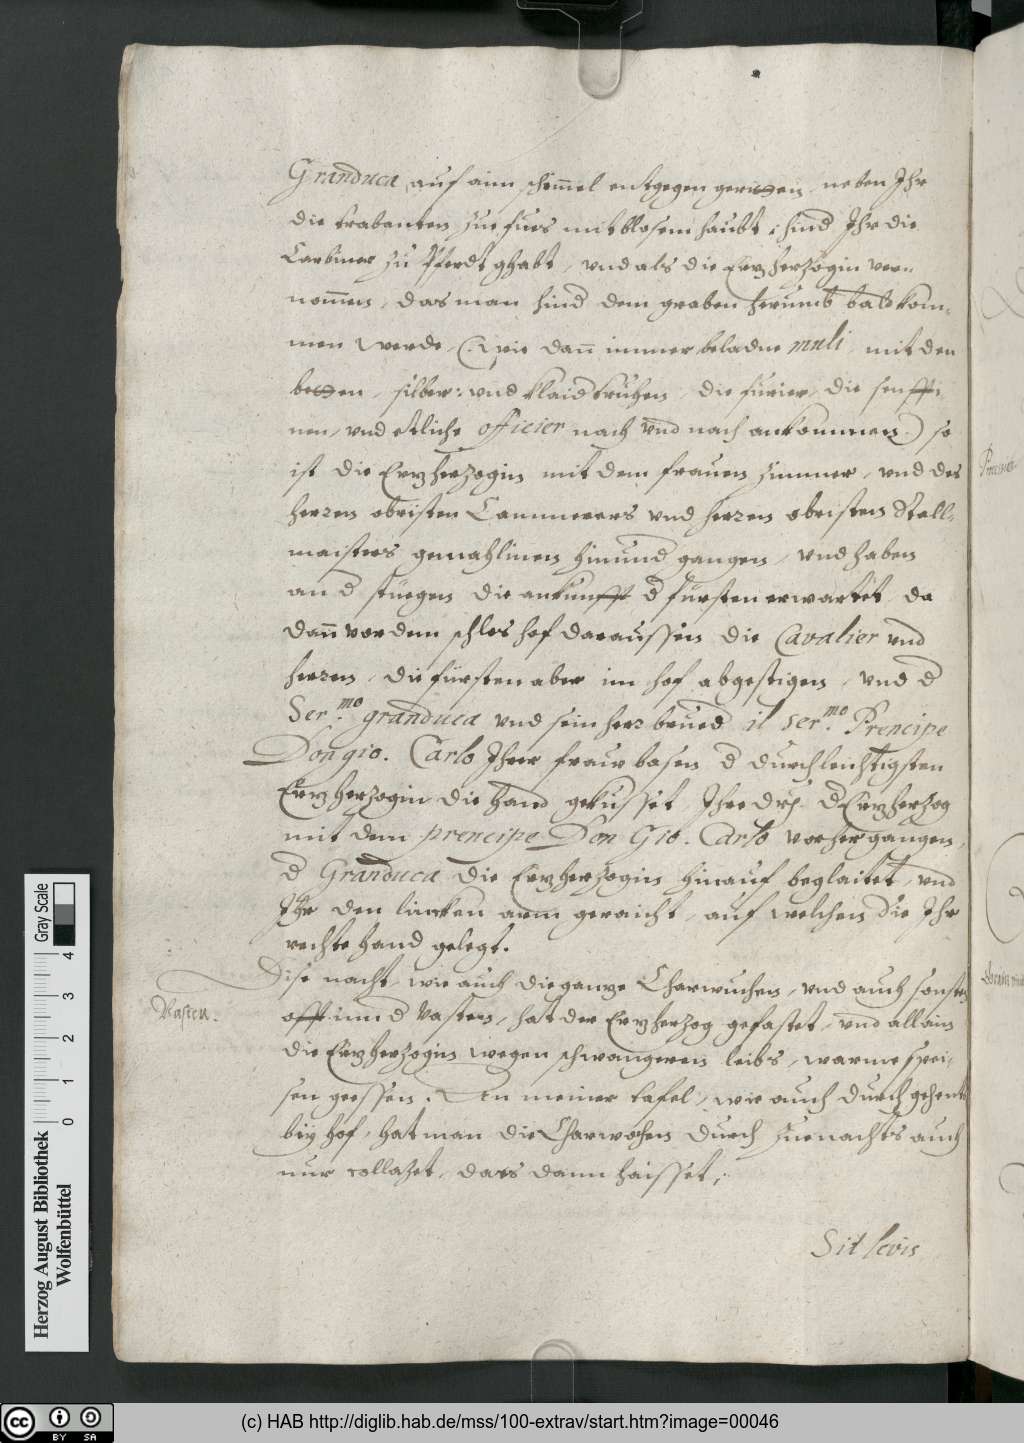 Granduca, auf aim schim̄el entgegen geritten, neben Ihr
die trabanten zue fues mit blosem haubt, hind Ihr die
Carbiner zu Pferdt ghabt, vnd als die Erzherzogin ver=
nom̄en, das man hind dem graben herumb bald kom=
men werde, (: wie dan̄ immer beladne muli, mit den
betten, silber: vnd klaid truhen, die furier, die senffti
nen, vnd etliche officier nach vnd nach ankommen:) so
ist die Erzherzogin mit dem frauen zimmer, vnd des
herren obristen Cammerers vnd herren obristen Stall=
maisters gemahlinen hinund gangen, vnd haben
an d stiegen die ankunfft d fürsten erwartet, da
dan̄ vor dem schlos hof daraussen die Cavalier vnd
herren, die fürsten aber im hof abgestigen, vnd d
Ser.mo granduca vnd sein herr brued il ser.mo Prencipe
Don gio. Carlo Ihrer fraw basen d durchleichtigsten
Erzherzogin die hand gekusset, Ihre drt. d Erzherzog
mit dem prencipe Don Gio. Carlo vorher gangen,
d Granduca die Erzherzogin hinauf beglaitet, vnd
Ihr den lincken arm geraicht, auf welchen die Ihr
rechte hand gelegt.
Dise nacht, wie auch die ganze Charwuchen, vnd auch sonsten
Vasten.
offt inn d Vasten, hat der Erzherzog gefastet, vnd allain
die Erzherzogin wegen schwangeren leibs, warme spei=
sen geessen. An meiner tafel, wie auch durchgehent
bey hof, hat man die Charwochen durch zue nachts auch
nur collazet, das dann haisset,:
Sit levis
Herzog August Bibliothek
Wolfenbüttel
0 1 2 3 4
Gray Scale
cc BY SA
(c) HAB http://diglib.hab.de/mss/100-extrav/start.htm?image=00046